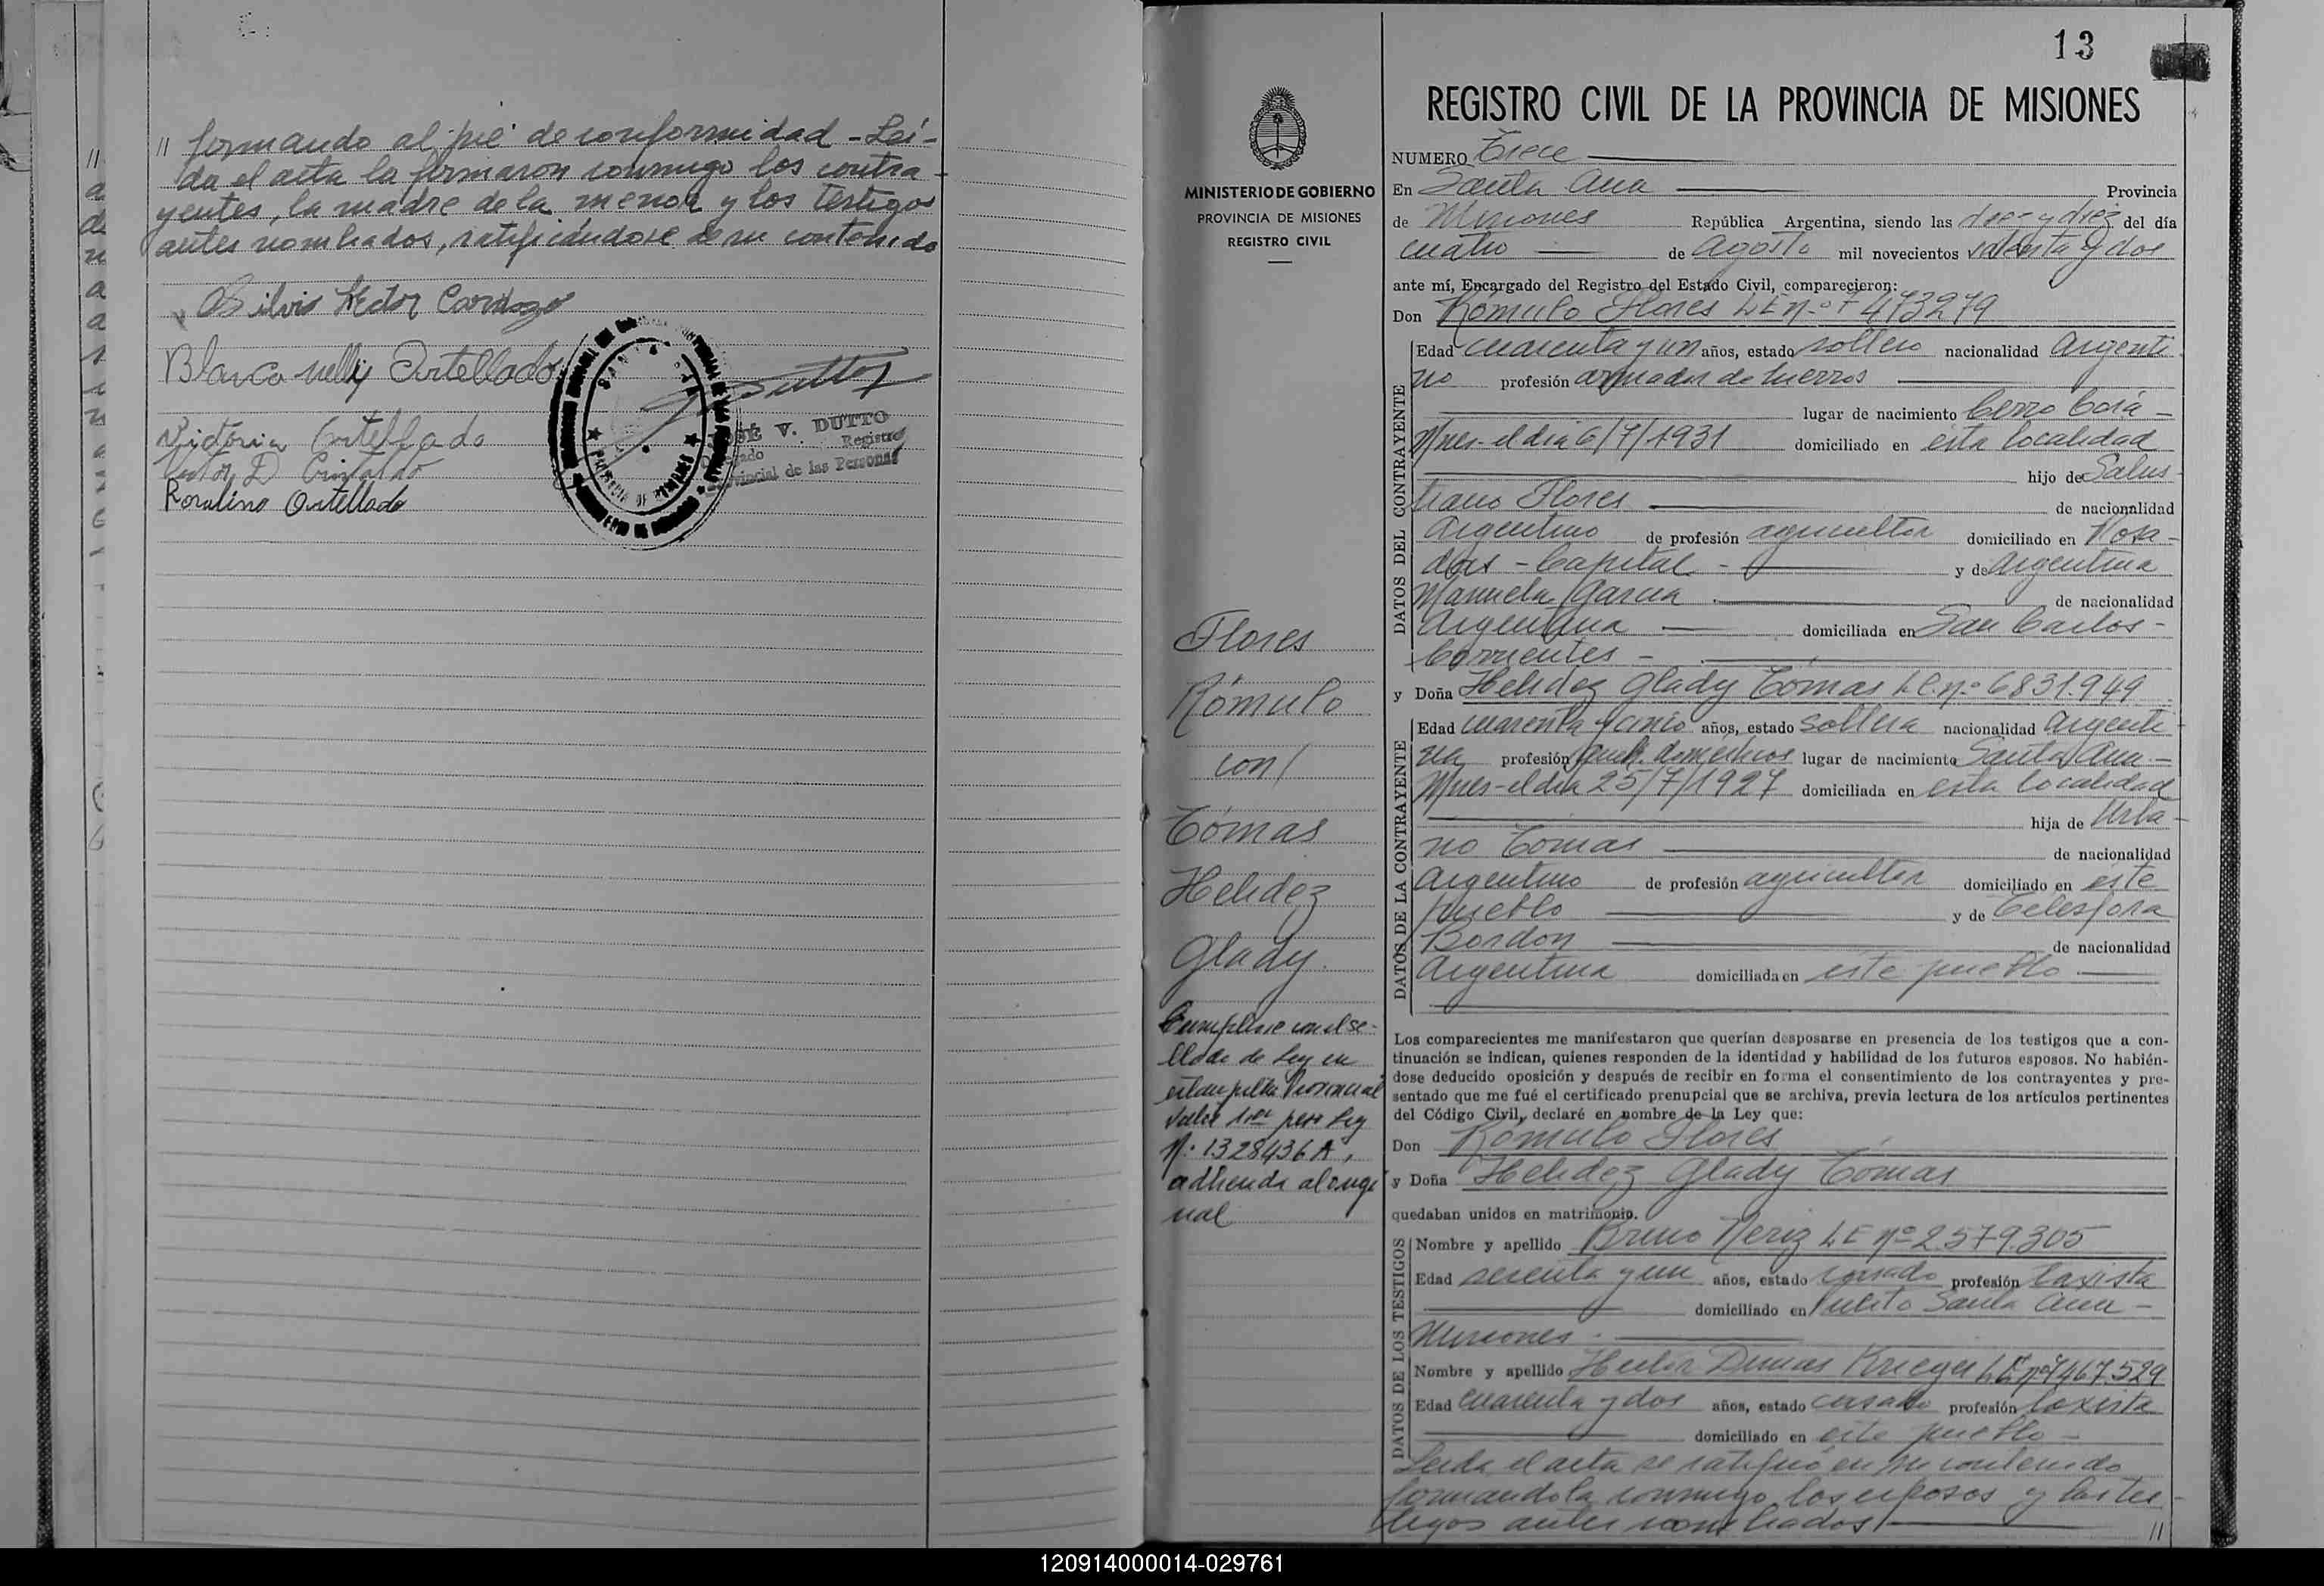 " formando al pie de conformidad - Leí-
da el acta la firmaron conmigo los contra-
yentes, la madre de la menor y los testigos
antes nombrados, ratificándose de su contenido
Silvio Hector Cardozo
Blanca nelly Ortellado
Victoria Ortellado
Rosalino Ortellado
JOSÉ V. DUTTO
Registro
Provincial de las Personas
13
MINISTERIO DE GOBIERNO
PROVINCIA DE MISIONES
REGISTRO CIVIL
Flores
Rómulo
con/
Tomas
Helidez
Glady.
Cumplese con el se-
llado de Ley en
estampilla Provincial
valor peso Ley
Nº 1328436 A,
adherida al origi
nal
REGISTRO CIVIL DE LA PROVINCIA DE MISIONES
NUMERO Trece
En Santa Ana Provincia
de Misiones República Argentina, siendo las diez y diez del día
cuatro de agosto mil novecientos setenta y dos
ante mí, Encargado del Registro del Estado Civil, comparecieron:
Don Rómulo Flores LE nº 7473279
DATOS DEL CONTRAYENTE
Edad cuarenta y un años, estado soltero nacionalidad argenti
no profesión armador de hierros
lugar de nacimiento Cerro Corá -
Mnes- el dia 6/7/1931 domiciliado en esta localidad
hijo de Salus
tiano Flores de nacionalidad
Argentino de profesión agricultor domiciliado en Posa-
das - Capital - y de Argentina
Manuela Garcia de nacionalidad
Argentina domiciliada en San Carlos -
Corrientes -
y Doña Helidez Glady Tomas L.C. nº 6831.949
DATOS DE LA CONTRAYENTE
Edad cuarenta y cinco años, estado soltera nacionalidad argenti
na profesión queh. domésticos lugar de nacimiento Santa Ana -
Mnes- el dia 25/7/1927 domiciliada en esta localidad
hija de Urba-
no Tomas de nacionalidad
Argentino de profesión agricultor domiciliado en este
pueblo y de Telesfora
Bordon de nacionalidad
Argentina domiciliada en este pueblo
Los comparecientes me manifestaron que querían desposarse en presencia de los testigos que a con-
tinuación se indican, quienes responden de la identidad y habilidad de los futuros esposos. No habién-
dose deducido oposición y después de recibir en forma el consentimiento de los contrayentes y pre-
sentado que me fué el certificado prenupcial que se archiva, previa lectura de los artículos pertinentes
del Código Civil, declaré en nombre de la Ley que:
Don Rómulo Flores
y Doña Helidez Glady Tomas
quedaban unidos en matrimonio.
DATOS DE LOS TESTIGOS
Nombre y apellido Bruno Neriz LE nº 2.579.305
Edad sesenta y un años, estado casado profesión taxista
domiciliado en Puerto Santa Ana -
Misiones -
Nombre y apellido Dimas Krieger LE nº 7467.529
Edad cuarenta y dos años, estado casado profesión taxista
domiciliado en este pueblo -
Leida el acta se ratificó en su contenido
firmandola conmigo los esposos y los tes-
tigos antes nombrados "
120914000014-029761